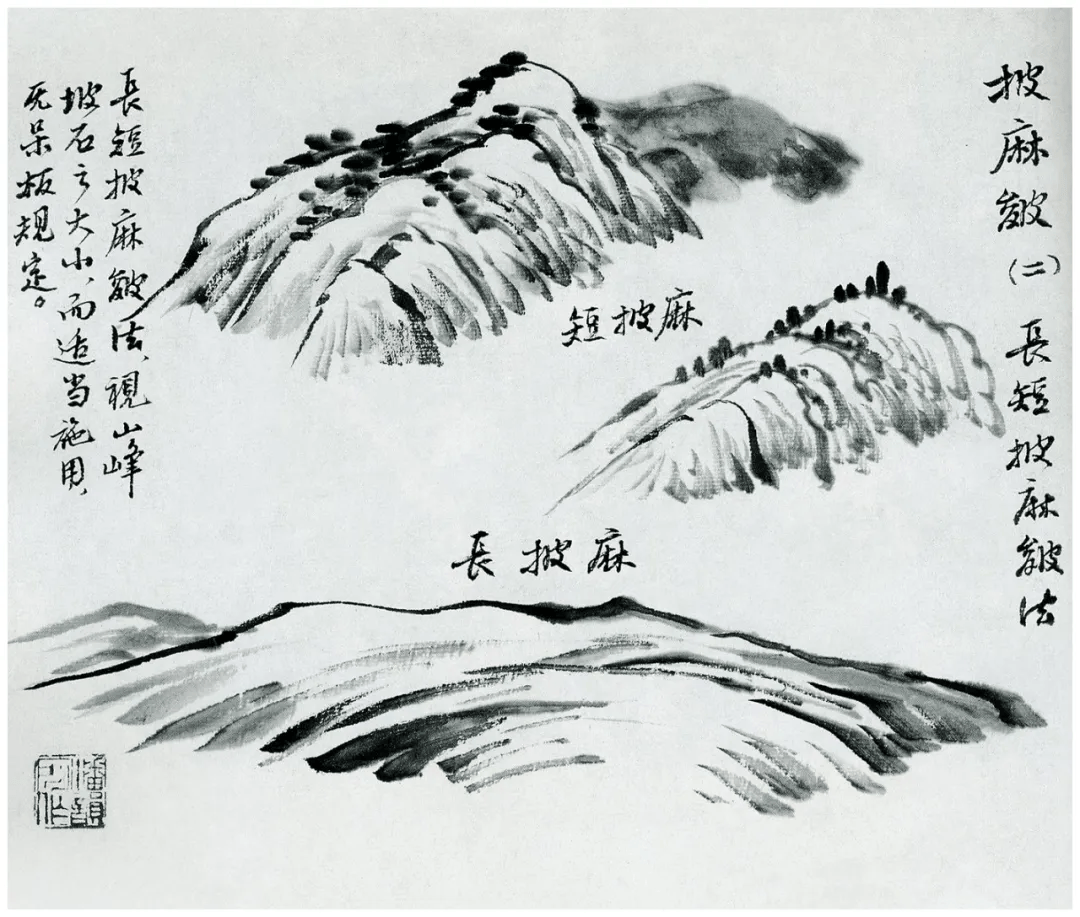 披麻皴(二) 長短披麻皴法
短披麻
長披麻
長短披麻皴法、視山峰
坡石之大小、而适当施用、
无呆板規定。